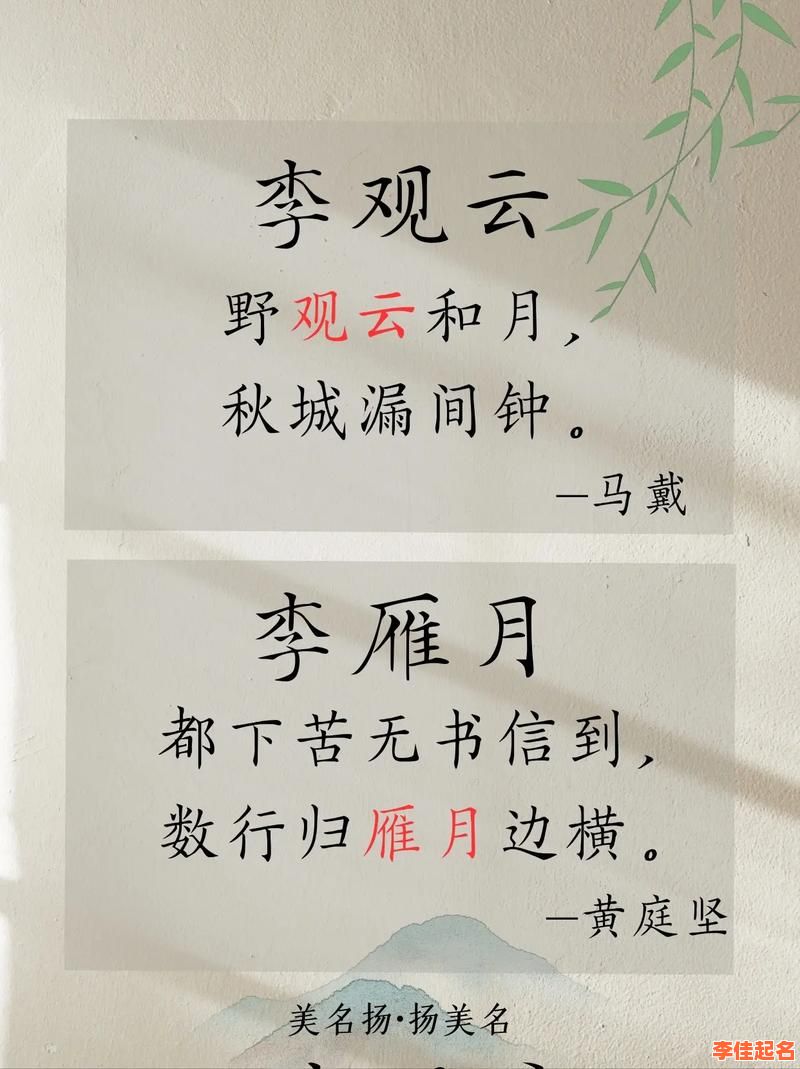 李观云
野观云和月,
秋城漏间钟。
—马戴
李雁月
都下苦无书信到,
数行归雁月边横。
—黄庭坚
美名扬·扬美名
李佳起名